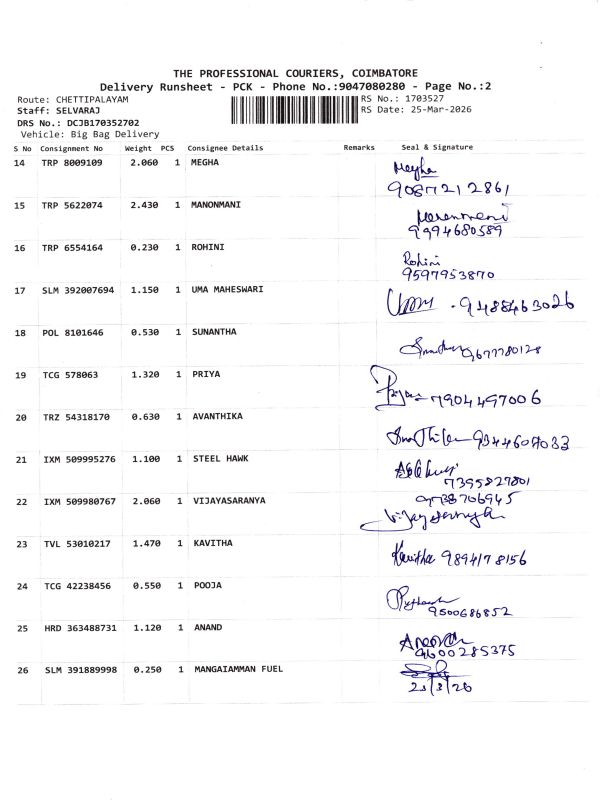 THE PROFESSIONAL COURIERS, COIMBATORE
Delivery Runsheet - PCK - Phone No.:9047080280 - Page No.:2
Route: CHETTIPALAYAM RS No.: 1703527
Staff: SELVARAJ RS Date: 25-Mar-2026
DRS No.: DCJB170352702
Vehicle: Big Bag Delivery
S No Consignment No Weight PCS Consignee Details Remarks Seal & Signature
14 TRP 8009109 2.060 1 MEGHA Megha
9087212861
15 TRP 5622074 2.430 1 MANONMANI
9994680589
16 TRP 6554164 0.230 1 ROHINI Rohini
9597953870
17 SLM 392007694 1.150 1 UMA MAHESWARI 9488463026
18 POL 8101646 0.530 1 SUNANTHA 9677780128
19 TCG 578063 1.320 1 PRIYA 7904497006
20 TRZ 54318170 0.630 1 AVANTHIKA
21 IXM 509995276 1.100 1 STEEL HAWK
7395827801
22 IXM 509980767 2.060 1 VIJAYASARANYA 9738706945
23 TVL 53010217 1.470 1 KAVITHA Kavitha 9894178156
24 TCG 42238456 0.550 1 POOJA
9500686852
25 HRD 363488731 1.120 1 ANAND
9600285375
26 SLM 391889998 0.250 1 MANGAIAMMAN FUEL